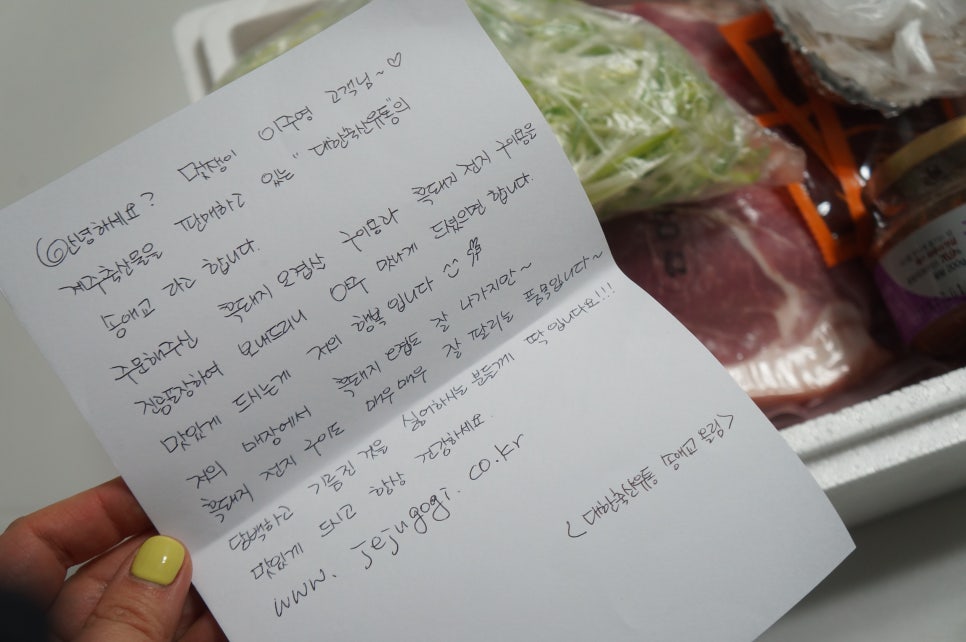 안녕하세요? 멋쟁이 이주영 고객님~♡
제주축산물을 판매하고 있는 "대한축산유통"의
송애교 라고 합니다.
주문해주신 흑돼지 오겹살 구이용과 흑돼지 전지 구이용을
진공포장하여 보내드리니 아주 맛나게 드셨으면 합니다.
맛있게 드시는게 저의 행복입니다
저의 매장에서 흑돼지 오겹도 잘 나가지만~
흑돼지 전지 구이도 매우매우 잘 팔리는 품목입니다~
담백하고 기름진 거을 싫어하시는 분들께 딱 입니다요!!!
맛있게 드시고 항상 건강하세요.
www.jejugogi.co.kr
<대한축산유통 송애교 올림>